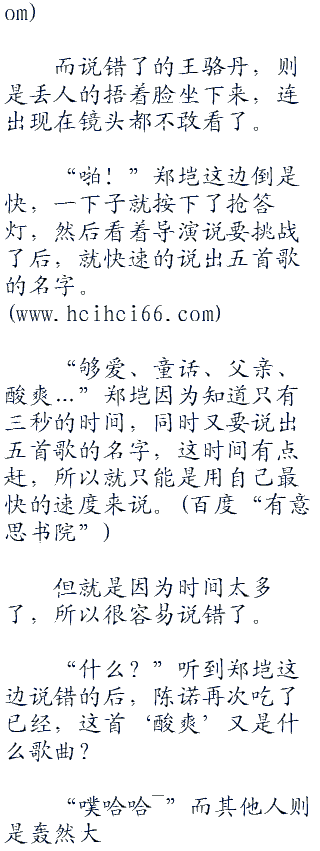 om)
而说错了的王骆丹，则
是丢人的捂着脸坐下来，连
出现在镜头都不敢看了。
“啪！”郑垲这边倒是
快，一下子就按下了抢答
灯，然后看着导演说要挑战
了后，就快速的说出五首歌
的名字。
(www.hcihci66.com)
“够爱、童话、父亲、
酸爽…”郑垲因为知道只有
三秒的时间，同时又要说出
五首歌的名字，这时间有点
赶，所以就只能是用自己最
快的速度来说。(百度“有意
思书院”)
但就是因为时间太多
了，所以很容易说错了。
“什么？”听到郑垲这
边说错的后，陈诺再次吃了
已经，这首‘酸爽’又是什
么歌曲？
“噗哈哈¯”而其他人则
是轰然大